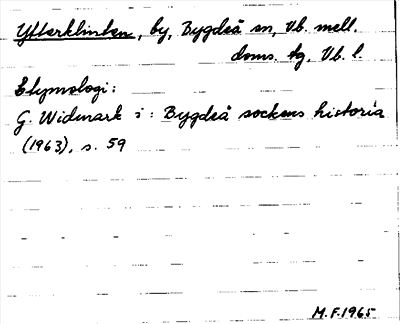 Ytterklinten, by, Bygdeå sn, Vb. mell.
doms. tg, Vb. l.
Etymologi:
G. Widmark i: Bygdeå sockens historia
(1963), s. 59
M.F. 1965